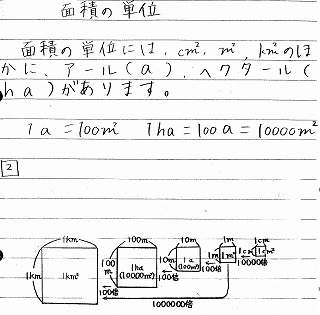 面積の単位
面積の単位には、cm²、m²、km²のほ
かに、アール(a)、ヘクタール(
ha)があります。
1a=100m² 1ha=100a=10000m²
2
1km 100m 10m 1m 1cm
1km 1km² 100m 1ha(10000m²) 10m 1a(100m²) 1m 1m² 1cm 1cm²
100倍 100倍 100倍 10000倍
1000000倍